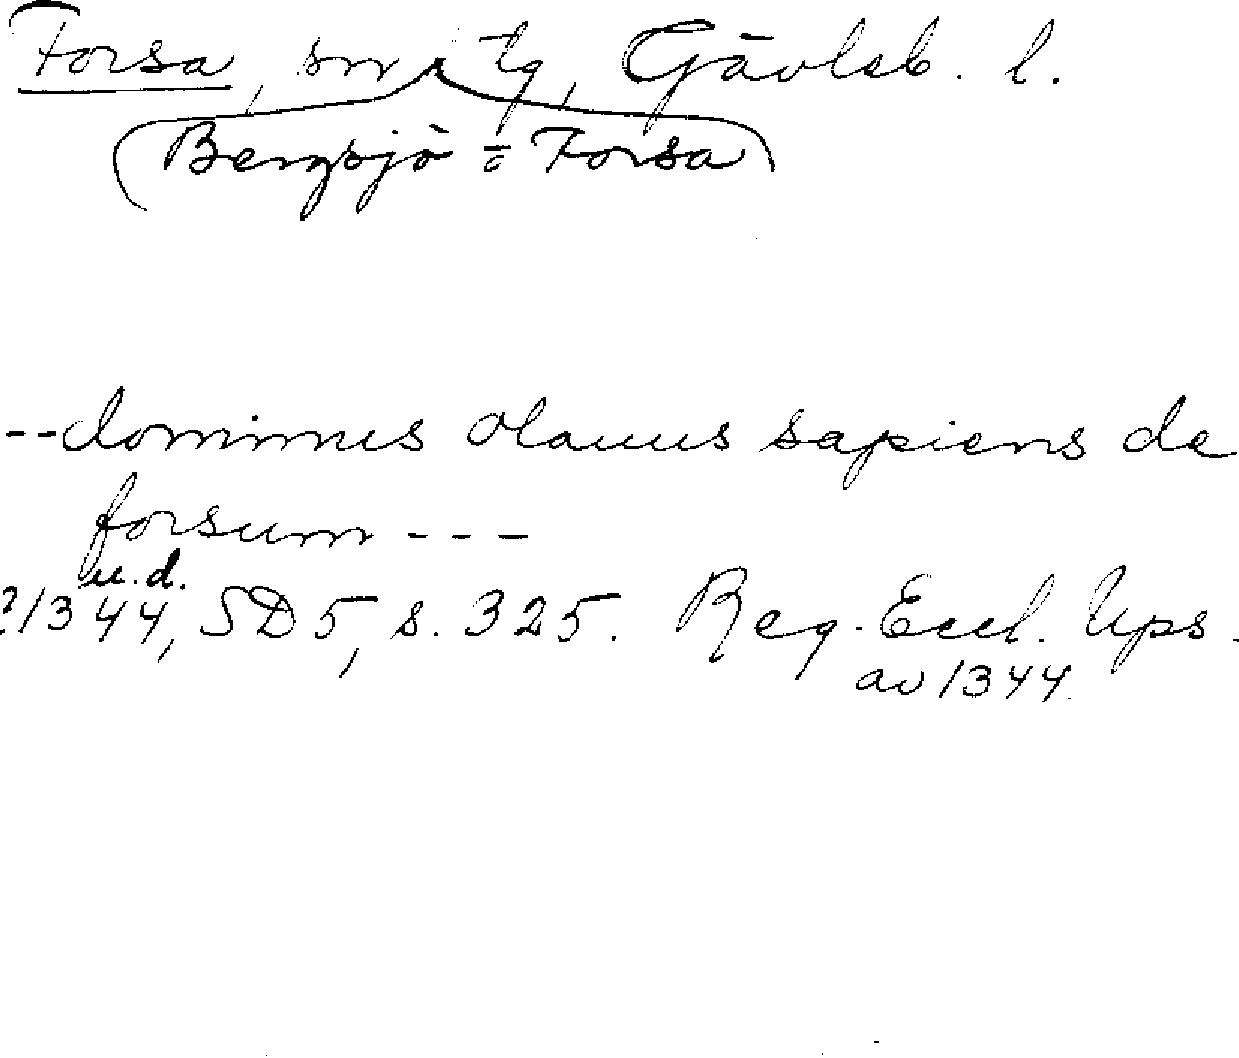 Forsa, sn tg, Gävleb. l.
Bergsjö o Forsa
--dominus olauus sapiens de
forsum ---
u.d.
1344, SD 5, s. 325. Reg. Eccl. Ups.
av 1344.